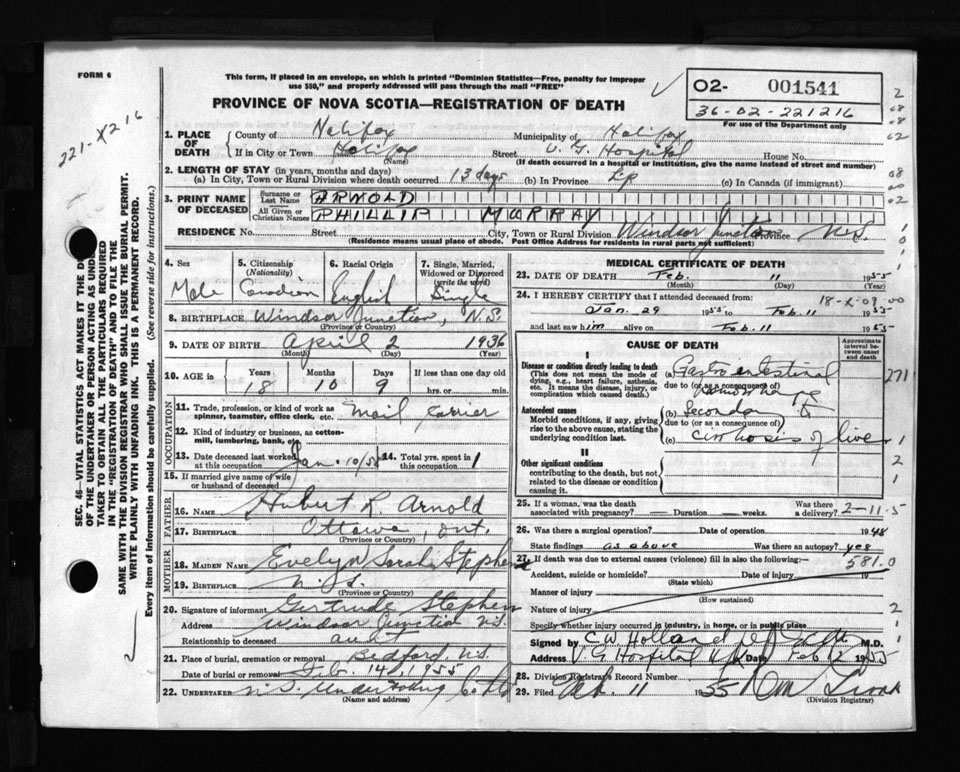 FORM 6
This form, if placed in an envelope, on which is printed "Dominion Statistics—Free, penalty for improper
use $50," and properly addressed will pass through the mail "FREE"
PROVINCE OF NOVA SCOTIA—REGISTRATION OF DEATH
02- 001541
36-02-221216
For use of the Department only
221-X216
SEC. 46—VITAL STATISTICS ACT MAKES IT THE D
OF THE UNDERTAKER OR PERSON ACTING AS UNDE
TAKER TO OBTAIN ALL THE PARTICULARS REQUIRED
IN THE "REGISTRATION OF DEATH" AND TO FILE THE
SAME WITH THE DIVISION REGISTRAR WHO SHALL ISSUE THE BURIAL PERMIT.
WRITE PLAINLY WITH UNFADING INK. THIS IS A PERMANENT RECORD.
Every item of information should be carefully supplied. (See reverse side for instructions.)
1. PLACE OF DEATH County of Halifax Municipality of Halifax
If in City or Town Halifax Street V. G. Hospital House No.
(Name) (If death occurred in a hospital or institution, give the name instead of street and number)
2. LENGTH OF STAY (in years, months and days)
(a) In City, Town or Rural Division where death occurred 13 days (b) In Province (c) In Canada (if immigrant)
3. PRINT NAME OF DECEASED Surname or Last Name ARNOLD
All Given or Christian Names PHILLIP MURRAY
RESIDENCE No. Street City, Town or Rural Division Windsor Junction Province N.S.
(Residence means usual place of abode. Post Office Address for residents in rural parts not sufficient)
4. Sex Male
5. Citizenship (Nationality) Canadian
6. Racial Origin English
7. Single, Married, Widowed or Divorced (write the word) Single
8. BIRTHPLACE Windsor Junction, N.S.
(Province or Country)
9. DATE OF BIRTH April 2 1936
(Month) (Day) (Year)
10. AGE in Years Months Days If less than one day old
18 10 9 hrs. or min.
OCCUPATION
11. Trade, profession or kind of work as spinner, teamster, office clerk, etc. Mail Carrier
12. Kind of industry or business, as cotton-mill, lumbering, bank, etc.
13. Date deceased last worked at this occupation Jan. 10/55 14. Total yrs. spent in this occupation 1
15. If married give name of wife or husband of deceased
FATHER
16. NAME Hubert R. Arnold
17. BIRTHPLACE Ottawa, Ont.
(Province or Country)
MOTHER
18. MAIDEN NAME Evelyn Sarah Stephen
19. BIRTHPLACE N.S.
(Province or Country)
20. Signature of informant Gertrude Stephen
Address Windsor Junction N.S.
Relationship to deceased aunt
21. Place of burial, cremation or removal Bedford, N.S.
Date of burial or removal Feb. 14, 1955
22. UNDERTAKER N.S. Undertaking Co Ltd
(Name and address)
MEDICAL CERTIFICATE OF DEATH
23. DATE OF DEATH Feb. 11 1955
(Month) (Day) (Year)
24. I HEREBY CERTIFY that I attended deceased from
Jan. 29 1955 to Feb. 11 1955
and last saw him alive on Feb. 11 1955
CAUSE OF DEATH
Approximate interval between onset and death
I
Disease or condition directly leading to death
(This does not mean the mode of dying, e.g., heart failure, asthenia, etc. It means the disease, injury, or complication which caused death.)
(a) Gastro intestinal
due to (or as a consequence of)
hemorrhage
Antecedent causes
Morbid conditions, if any, giving rise to the above cause, stating the underlying condition last.
(b) Secondary to
due to (or as a consequence of)
(c) cirrhosis of liver
II
Other significant conditions
contributing to the death, but not related to the disease or condition causing it.
25. If a woman, was the death associated with pregnancy? Duration weeks. Was there a delivery?
2-11-5
26. Was there a surgical operation? Date of operation 1948
State findings as above Was there an autopsy? yes
27. If death was due to external causes (violence) fill in also the following:
581.0
Accident, suicide or homicide? Date of injury 19
(State which)
Manner of injury
(How sustained)
Nature of injury
Specify whether injury occurred in industry, in home, or in public place
Signed by C W Holland M.D.
Address V. G. Hospital Date Feb 12 1955
28. Division Registrar's Record Number
29. Filed Feb. 11 1955
(Division Registrar)